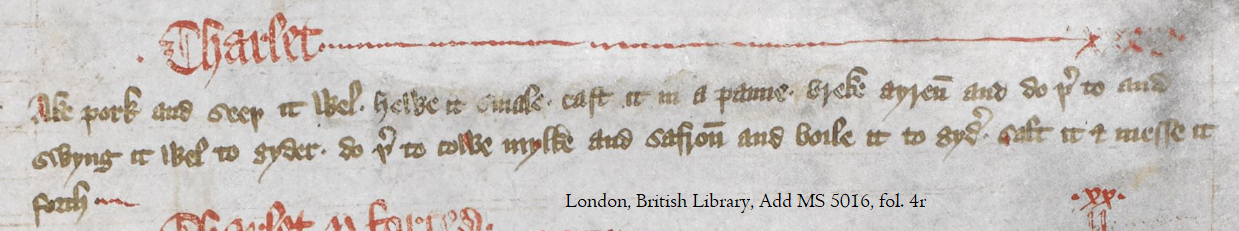 Charlet
Ake pork and seeþ it wel· hewe it smale· cast it in a panne· breke ayren̄ and do þ͛ to and
swyng it wel to gyder· do þ͛ to cowe mylke and safron̄ and boile it to gyd͛· salt it ⁊ messe it
forth
London, British Library, Add MS 5016, fol. 4r
·xx·
Charlet y forced·
ii